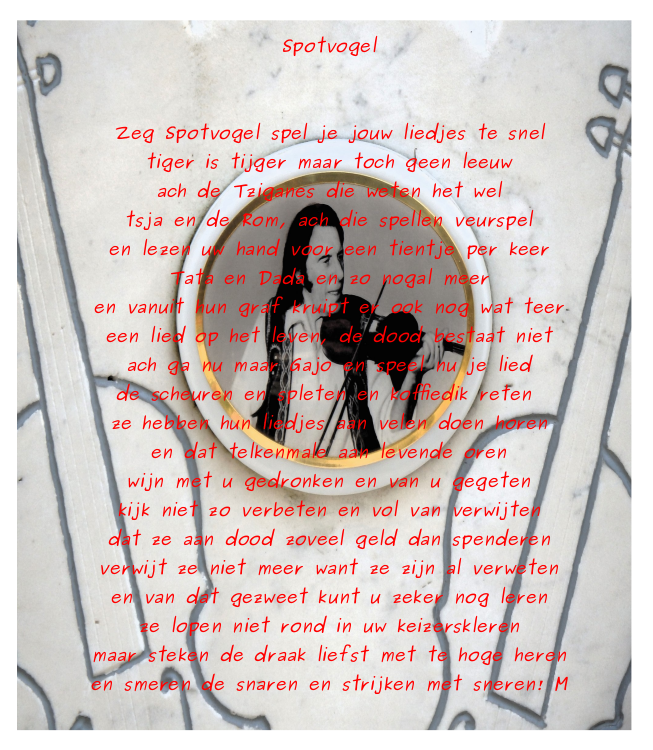 Spotvogel
Zeg Spotvogel spel je jouw liedjes te snel
tiger is tijger maar toch geen leeuw
ach de Tziganes die weten het wel
tsja en de Rom, ach die spellen veurspel
en lezen uw hand voor een tientje per keer
Tata en Dada en zo nogal meer
en vanuit hun graf kruipt er ook nog wat teer
een lied op het leven, de dood bestaat niet
ach ga nu maar Gajo en speel nu je lied
de scheuren en spleten en koffiedik reten
ze hebben hun liedjes aan velen doen horen
en dat telkenmale aan levende oren
wijn met u gedronken en van u gegeten
kijk niet zo verbeten en vol van verwijten
dat ze aan dood zoveel geld dan spenderen
verwijt ze niet meer want ze zijn al verweten
en van dat gezweet kunt u zeker nog leren
ze lopen niet rond in uw keizerskleren
maar steken de draak liefst met te hoge heren
en smeren de snaren en strijken met sneren! M